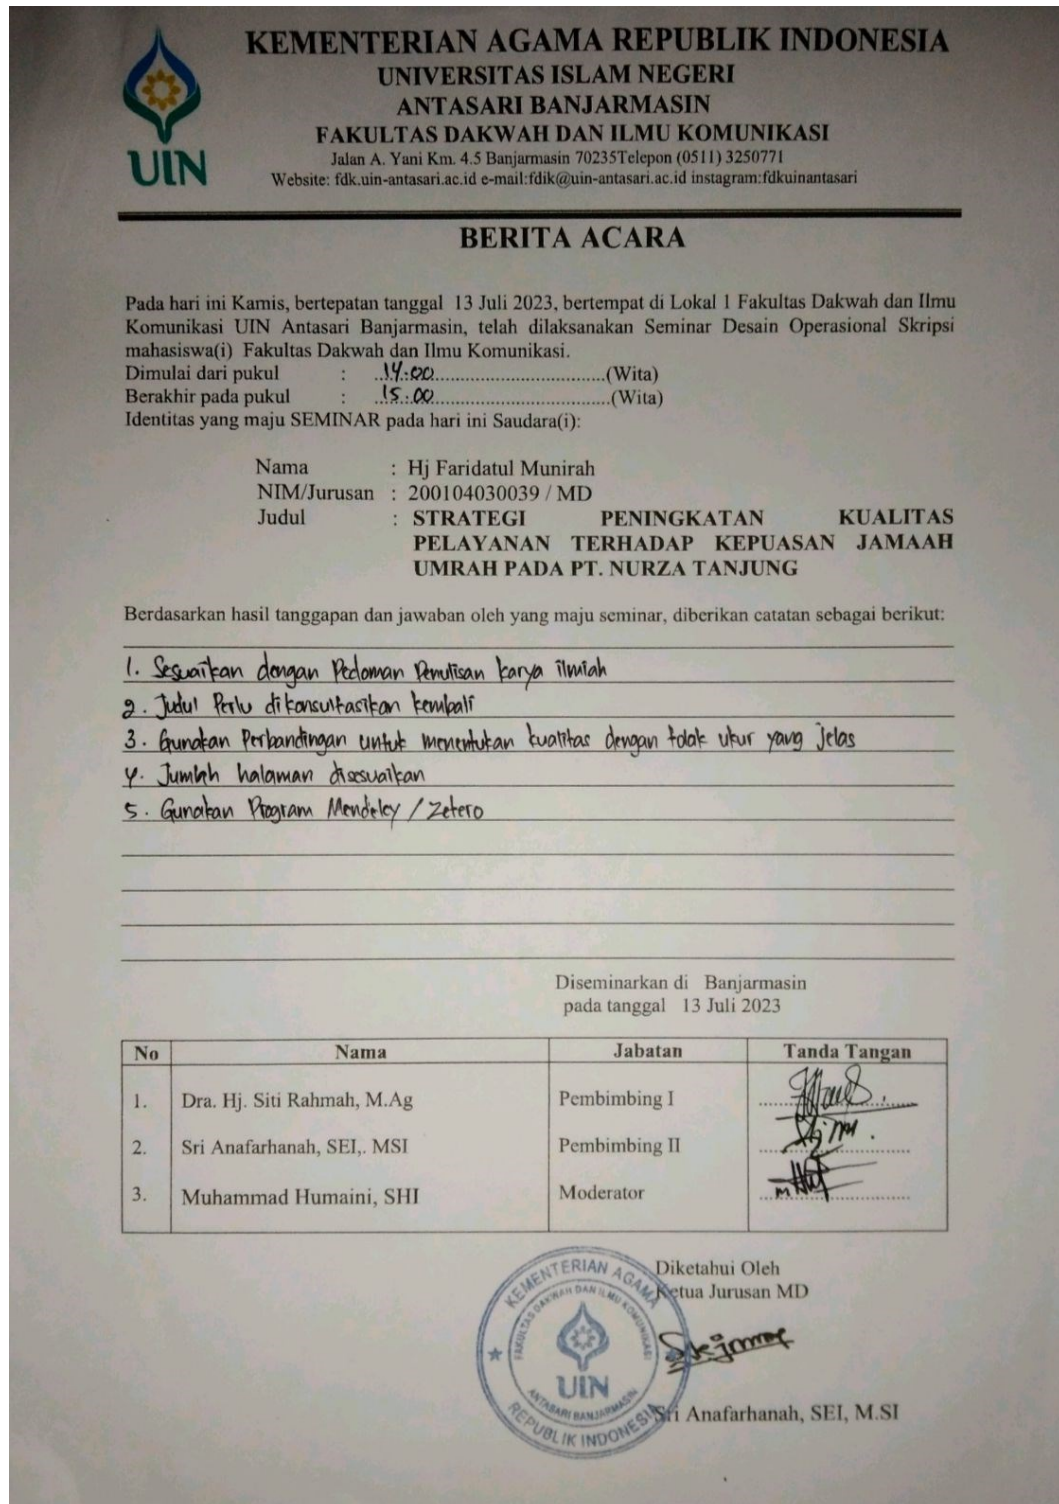 KEMENTERIAN AGAMA REPUBLIK INDONESIA
UNIVERSITAS ISLAM NEGERI
ANTASARI BANJARMASIN
FAKULTAS DAKWAH DAN ILMU KOMUNIKASI
Jalan A. Yani Km. 4.5 Banjarmasin 70235Telepon (0511) 3250771
Website: fdk.uin-antasari.ac.id e-mail:fdik@uin-antasari.ac.id instagram:fdkuinantasari
UIN
BERITA ACARA
Pada hari ini Kamis, bertepatan tanggal 13 Juli 2023, bertempat di Lokal 1 Fakultas Dakwah dan Ilmu
Komunikasi UIN Antasari Banjarmasin, telah dilaksanakan Seminar Desain Operasional Skripsi
mahasiswa(i) Fakultas Dakwah dan Ilmu Komunikasi.
Dimulai dari pukul : ..14.00................................(Wita)
Berakhir pada pukul : ..15.00................................(Wita)
Identitas yang maju SEMINAR pada hari ini Saudara(i):
Nama : Hj Faridatul Munirah
NIM/Jurusan : 200104030039 / MD
Judul : STRATEGI PENINGKATAN KUALITAS
PELAYANAN TERHADAP KEPUASAN JAMAAH
UMRAH PADA PT. NURZA TANJUNG
Berdasarkan hasil tanggapan dan jawaban oleh yang maju seminar, diberikan catatan sebagai berikut:
1. Sesuaikan dengan Pedoman Penulisan karya ilmiah
2. Judul Perlu dikonsultasikan kembali
3. Gunakan Perbandingan untuk menentukan kualitas dengan tolak ukur yang jelas
4. Jumlah halaman disesuaikan
5. Gunakan Program Mendeley / Zetero
Diseminarkan di Banjarmasin
pada tanggal 13 Juli 2023
No Nama Jabatan Tanda Tangan
1. Dra. Hj. Siti Rahmah, M.Ag Pembimbing I
2. Sri Anafarhanah, SEI,. MSI Pembimbing II
3. Muhammad Humaini, SHI Moderator
Diketahui Oleh
Ketua Jurusan MD
KEMENTERIAN AGAMA
FAKULTAS DAKWAH DAN ILMU KOMUNIKASI
UIN
ANTASARI BANJARMASIN
REPUBLIK INDONESIA
Sri Anafarhanah, SEI, M.SI